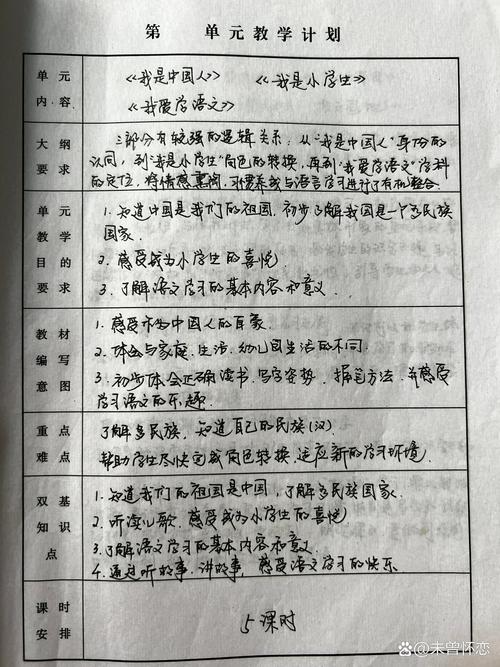 第 单元教学计划
单元内容
《我是中国人》 《我是小学生》
《我爱学语文》
大纲要求
三部分有较强的逻辑关系：从“我是中国人”身份的
认同，到“我是小学生”角色的转换，再到“我爱学语文”学科
的定位，将情感熏陶、习惯养成与语言学习进行了有机整合.
单元教学目的要求
1.知道中国是我们的祖国，初步了解我国是一个多民族
国家.
2.感受成为小学生的喜悦
3.了解语文学习的基本内容和意义.
教材编写意图
1.感受作为中国人的自豪
2.体会与家庭.生活.幼儿园生活的不同.
3.初步体会正确读书、写字姿势、握笔方法.并感受
学习语文的乐趣.
重点难点
了解多民族，知道自己的民族(汉)
帮助学生尽快完成角色转换.适应新的学习环境.
双基知识点
1.知道我们的祖国是中国，了解多民族国家.
2.听读儿歌.感受成为小学生的喜悦
3.了解语文学习的基本内容和意义.
4.通过听故事.讲故事，感受语文学习的快乐
课时安排
5课时
@未曾怀恋